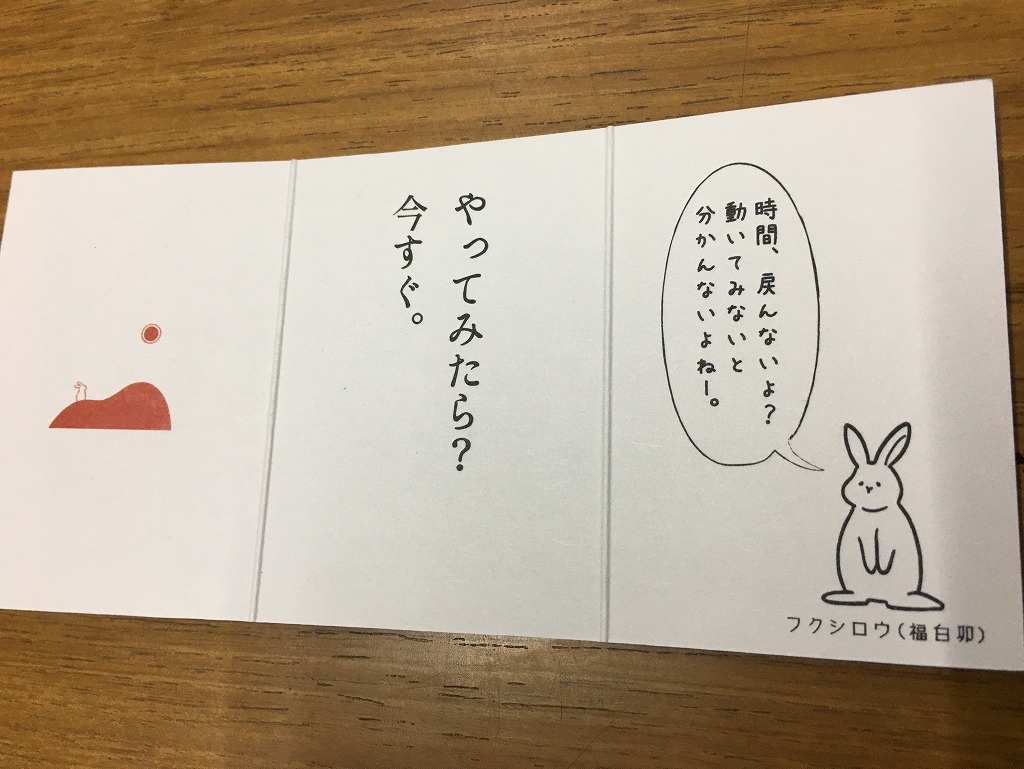 時間、戻んないよ?
動いてみないと
分かんないよねー。
フクシロウ(福白卯)
やってみたら?
今すぐ。